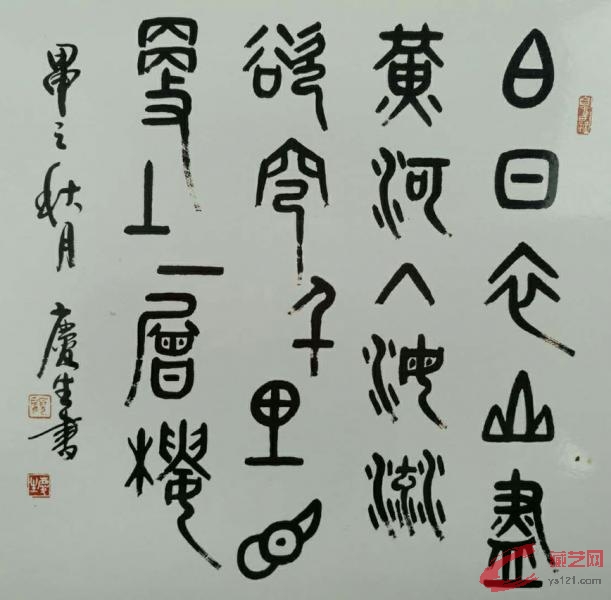 白日衣山盡
黃河入海流
欲窮千里目
更上一層樓
秋月 慶生書
藏艺网
ys121.com